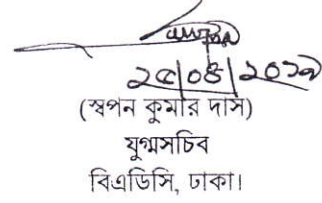 ২৫/০৪/২০১৯
(স্বপন কুমার দাস)
যুগ্মসচিব
বিএডিসি, ঢাকা।